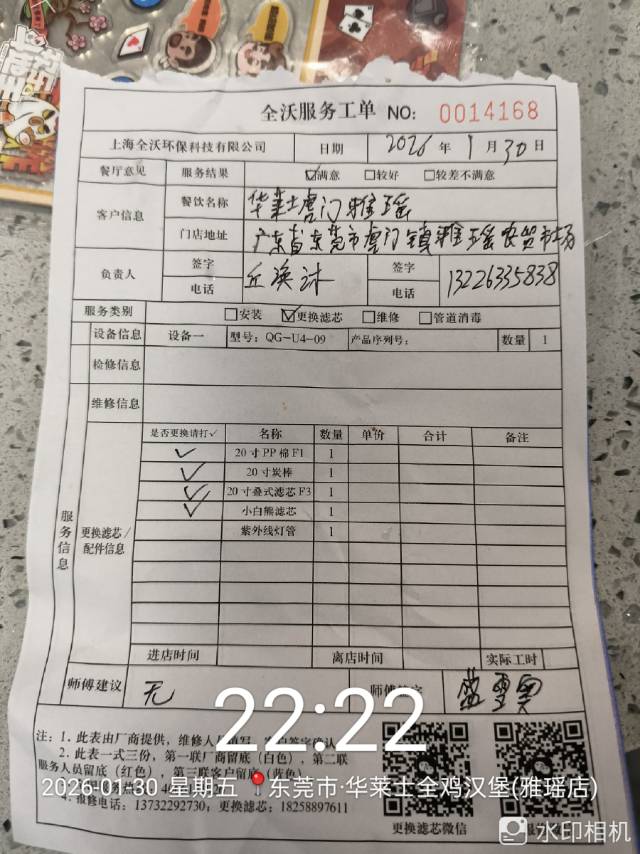 全沃服务工单 NO: 0014168
上海全沃环保科技有限公司 日期 2026 年 1 月 30 日
餐厅意见 服务结果 ☑满意 □较好 □较差不满意
客户信息 餐饮名称 华莱士虎门雅瑶
门店地址 广东省东莞市虎门镇雅瑶农贸市场
负责人 签字 丘焕 签字
电话 电话 13226335838
服务类别 □安装 ☑更换滤芯 □维修 □管道消毒
设备信息 设备一 型号: QG-U4-09 产品序列号: 数量 1
检修信息
维修信息
服务信息
更换滤芯/配件信息
是否更换请打✓ 名称 数量 单价 合计 备注
✓ 20寸PP棉F1 1
✓ 20寸炭棒 1
✓ 20寸叠式滤芯F3 1
✓ 小白熊滤芯 1
紫外线灯管 1
进店时间 离店时间 实际工时
师傅建议 无 师傅签字
22:22
注: 1. 此表由厂商提供, 维修人员填写, 客户签字确认
2. 此表一式三份, 第一联厂商留底 (白色), 第二联
服务人员留底 (红色), 第三联客户留底 (蓝色)
2026-01-30 星期五 东莞市·华莱士全鸡汉堡(雅瑶店)
4. 维修电话: 13732292730; 更换滤芯: 18258897611
更换滤芯微信
水印相机